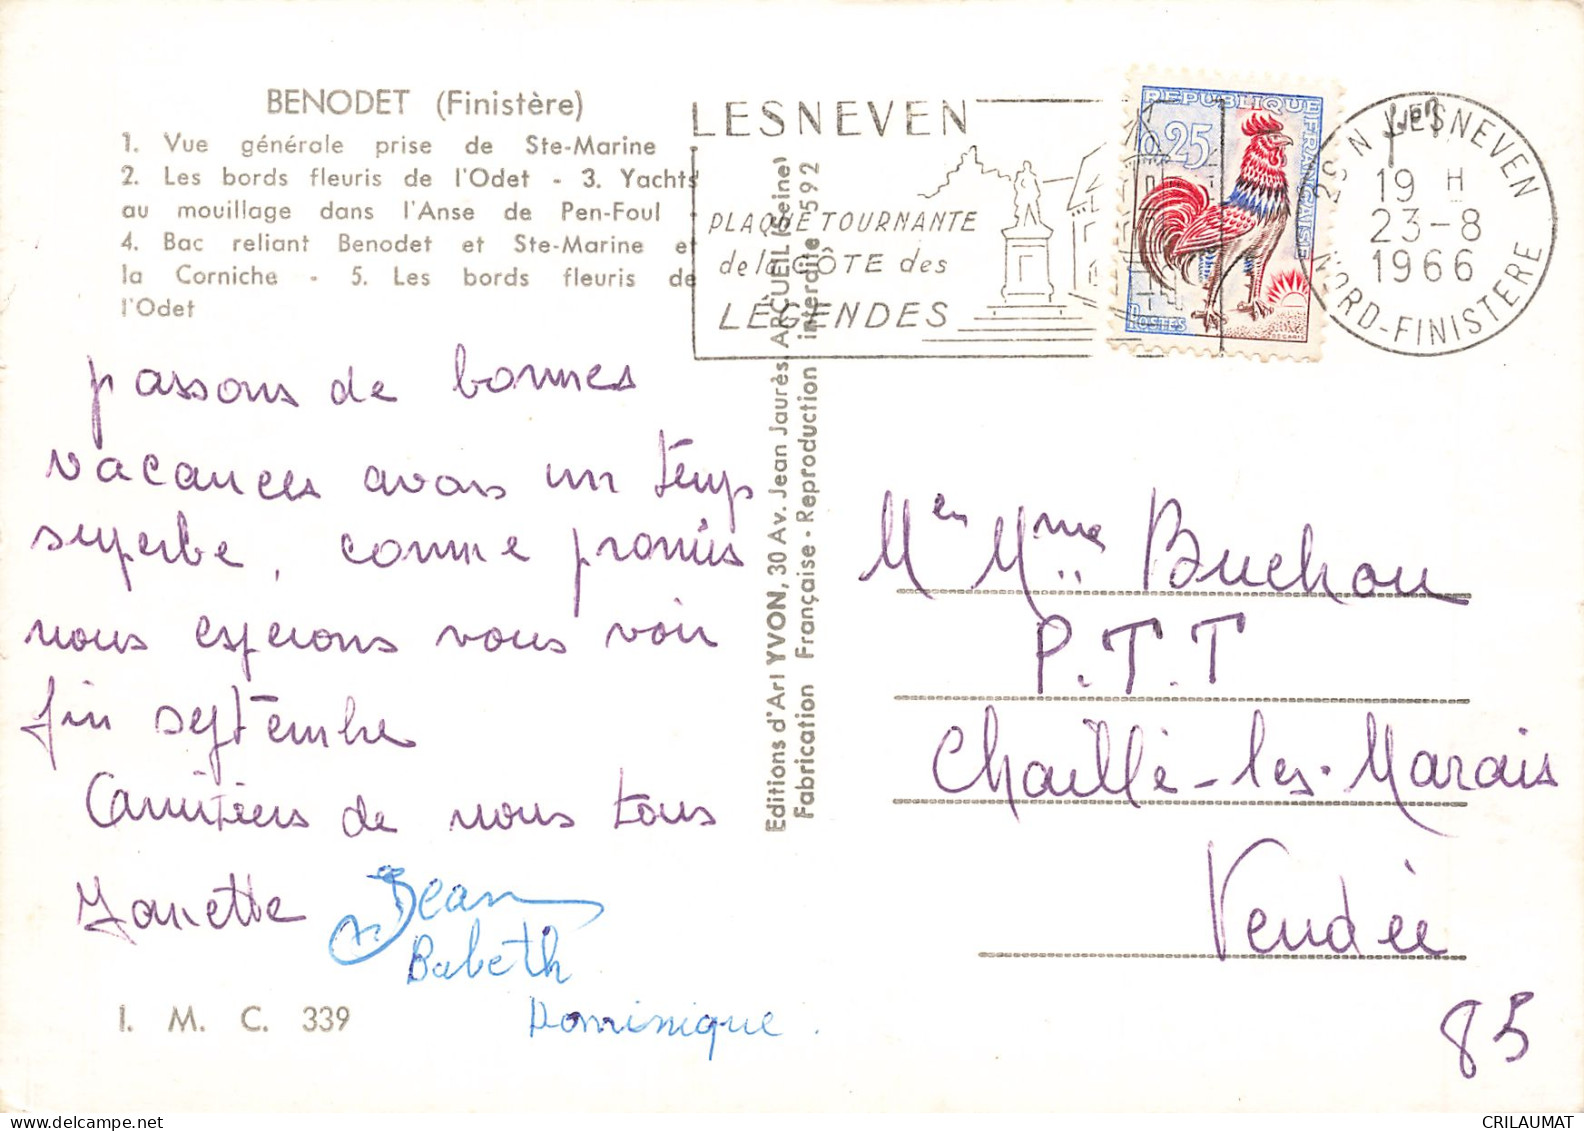 BENODET (Finistère)
1. Vue générale prise de Ste-Marine
2. Les bords fleuris de l'Odet - 3. Yachts
au mouillage dans l'Anse de Pen-Foul
4. Bac reliant Benodet et Ste-Marine et
la Corniche - 5. Les bords fleuris de
l'Odet
passons de bonnes
vacances avons un temps
superbe, comme promis
nous espérons vous voir
fin septembre
Amitiés de nous tous
Janette
Jean
Babeth
Dominique.
I. M. C. 339
Editions d'Art YVON, 30 Av. Jean Jaurès, ARCUEIL (Seine)
Fabrication Française - Reproduction interdite 592
LESNEVEN
PLAQUE TOURNANTE
de la CÔTE des
LÉGENDES
REPUBLIQUE FRANÇAISE
0,25
POSTES
DECARIS
LESNEVEN
19 H
23-8
1966
NORD-FINISTERE
Mr et Mme Buchou
P.T.T
Chaillé-les-Marais
Vendée
85
CRILAUMAT